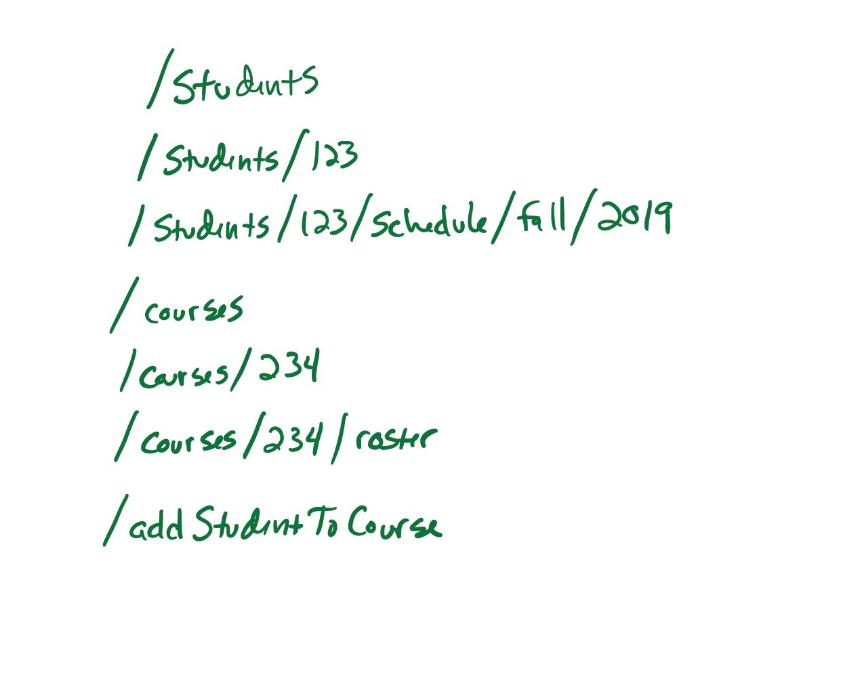 /Students
/Students/123
/Students/123/Schedule/fall/2019
/courses
/courses/234
/courses/234/roster
/add Student To Course